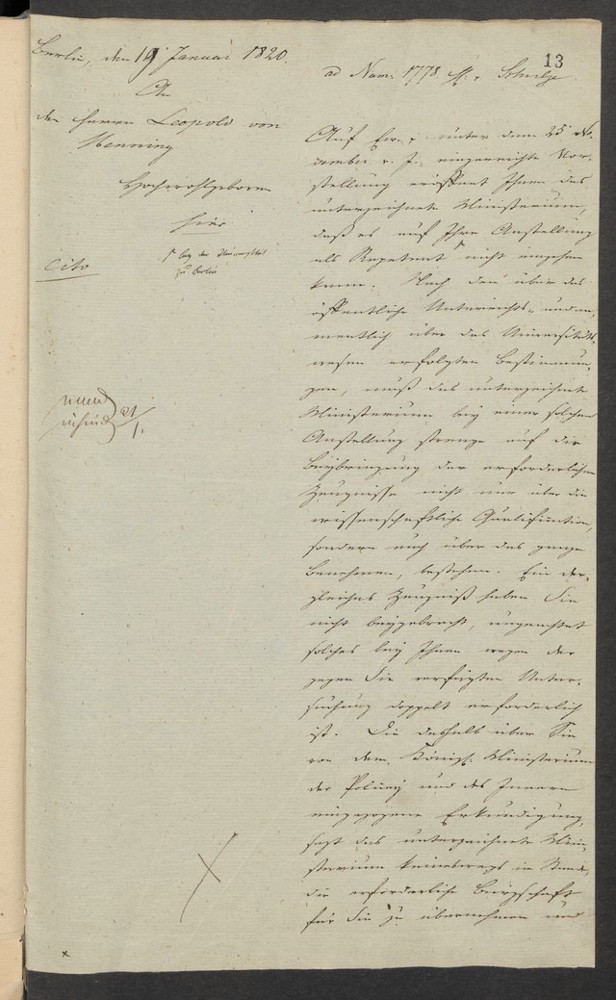 13
Berlin, den 19 Januar 1820.
ad Num. 1778. H. Schulze
An
den Herrn Leopold von
Henning
Hochwohlgeboren
hier
cito
bey der Universität
zu Berlin
21/1.
Auf Ew. unter dem 25 De-
cember v. J. eingereichte Vor-
stellung eröffnet Ihnen das
unterzeichnete Ministerium,
daß es auf Ihre Anstellung
als Repetent nicht eingehen
kann. Nach den über das
öffentliche Unterrichts- und na-
mentlich über das Universitäts-
wesen erfolgten Bestimmun-
gen, muß das unterzeichnete
Ministerium bey einer solchen
Anstellung strenge auf die
Beybringung der erforderlichen
Zeugnisse nicht nur über die
wissenschaftliche Qualification,
sondern auch über das ganze
Benehmen, bestehen. Ein der-
gleichen Zeugniß haben Sie
nicht beygebracht, ungeachtet
solches bey Ihnen wegen der
gegen Sie verfügten Unter-
suchung doppelt erforderlich
ist. Die deshalb über Sie
von dem Königl. Ministerium
der Polizey und des Innern
eingezogene Erkundigung
setzt das unterzeichnete Mini-
sterium keineswegs in Stand,
die erforderliche Bürgschaft
für Sie zu übernehmen und